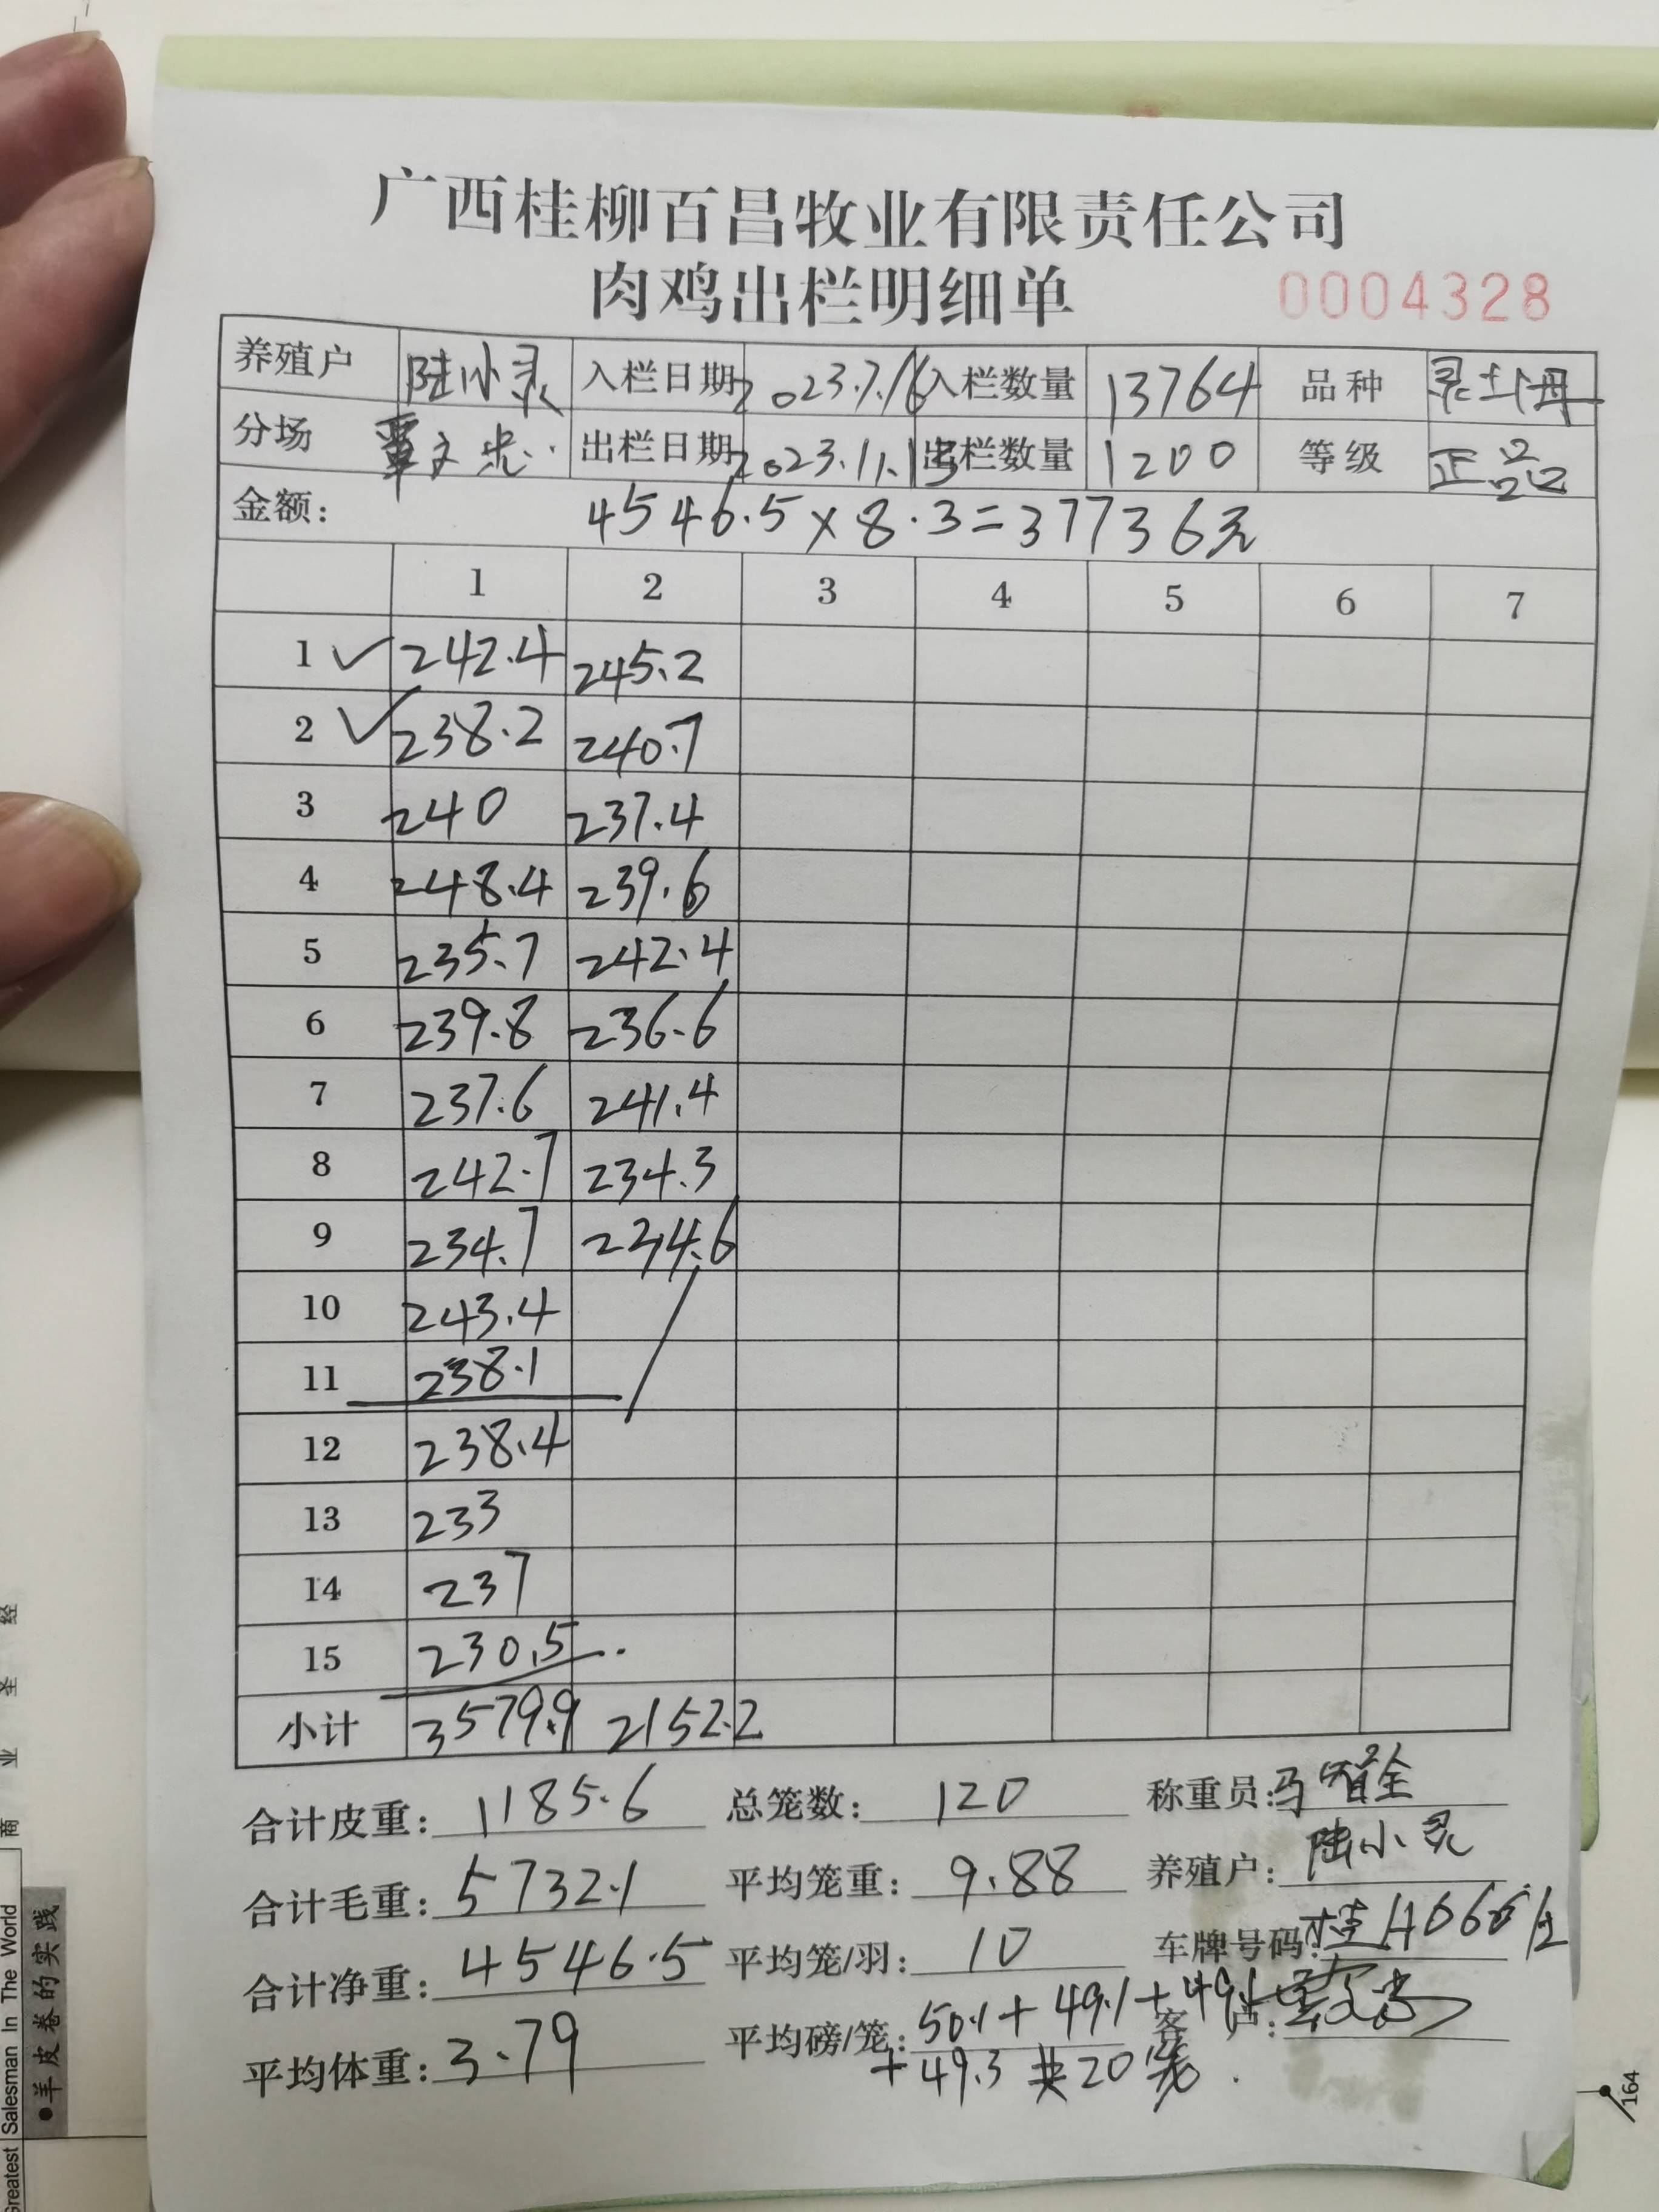 广西桂柳百昌牧业有限责任公司
肉鸡出栏明细单 0004328
养殖户 陆小灵 入栏日期 2023.7.16 入栏数量 13764 品种 灵土母
分场 覃文忠 出栏日期 2023.11.13 出栏数量 1200 等级 正品
金额: 4546.5×8.3=37736元
1 2 3 4 5 6 7
1 ✓ 242.4 245.2
2 ✓ 238.2 240.7
3 240 237.4
4 248.4 239.6
5 235.7 242.4
6 239.8 236.6
7 237.6 241.4
8 242.7 234.3
9 234.7 234.6
10 243.4
11 238.1
12 238.4
13 233
14 237
15 230.5
小计 3579.9 2152.2
合计皮重: 1185.6 总笼数: 120 称重员:
合计毛重: 5732.1 平均笼重: 9.88 养殖户: 陆小灵
合计净重: 4546.5 平均笼/羽: 10 车牌号码:
平均体重: 3.79 平均磅/笼: 50.1+49.1+49.1 客户:
+49.3 共20笼.
商业圣经
Greatest Salesman In The World
●羊皮卷的实践
164